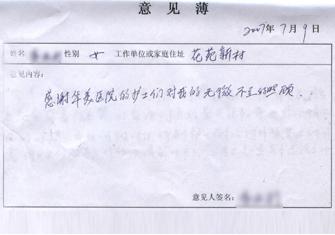 意见薄
2007年7月9日
姓名 性别 女 工作单位或家庭住址 花苑新村
意见内容:
感谢华美医院的护士们对我的无微不至的照顾...
意见人签名: